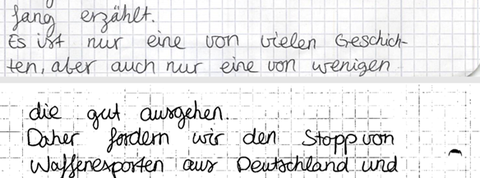 fang erzählt.
Es ist nur eine von vielen Geschich-
ten, aber auch nur eine von wenigen
die gut ausgehen.
Daher fordern wir den Stopp von
Waffenexporten aus Deutschland und